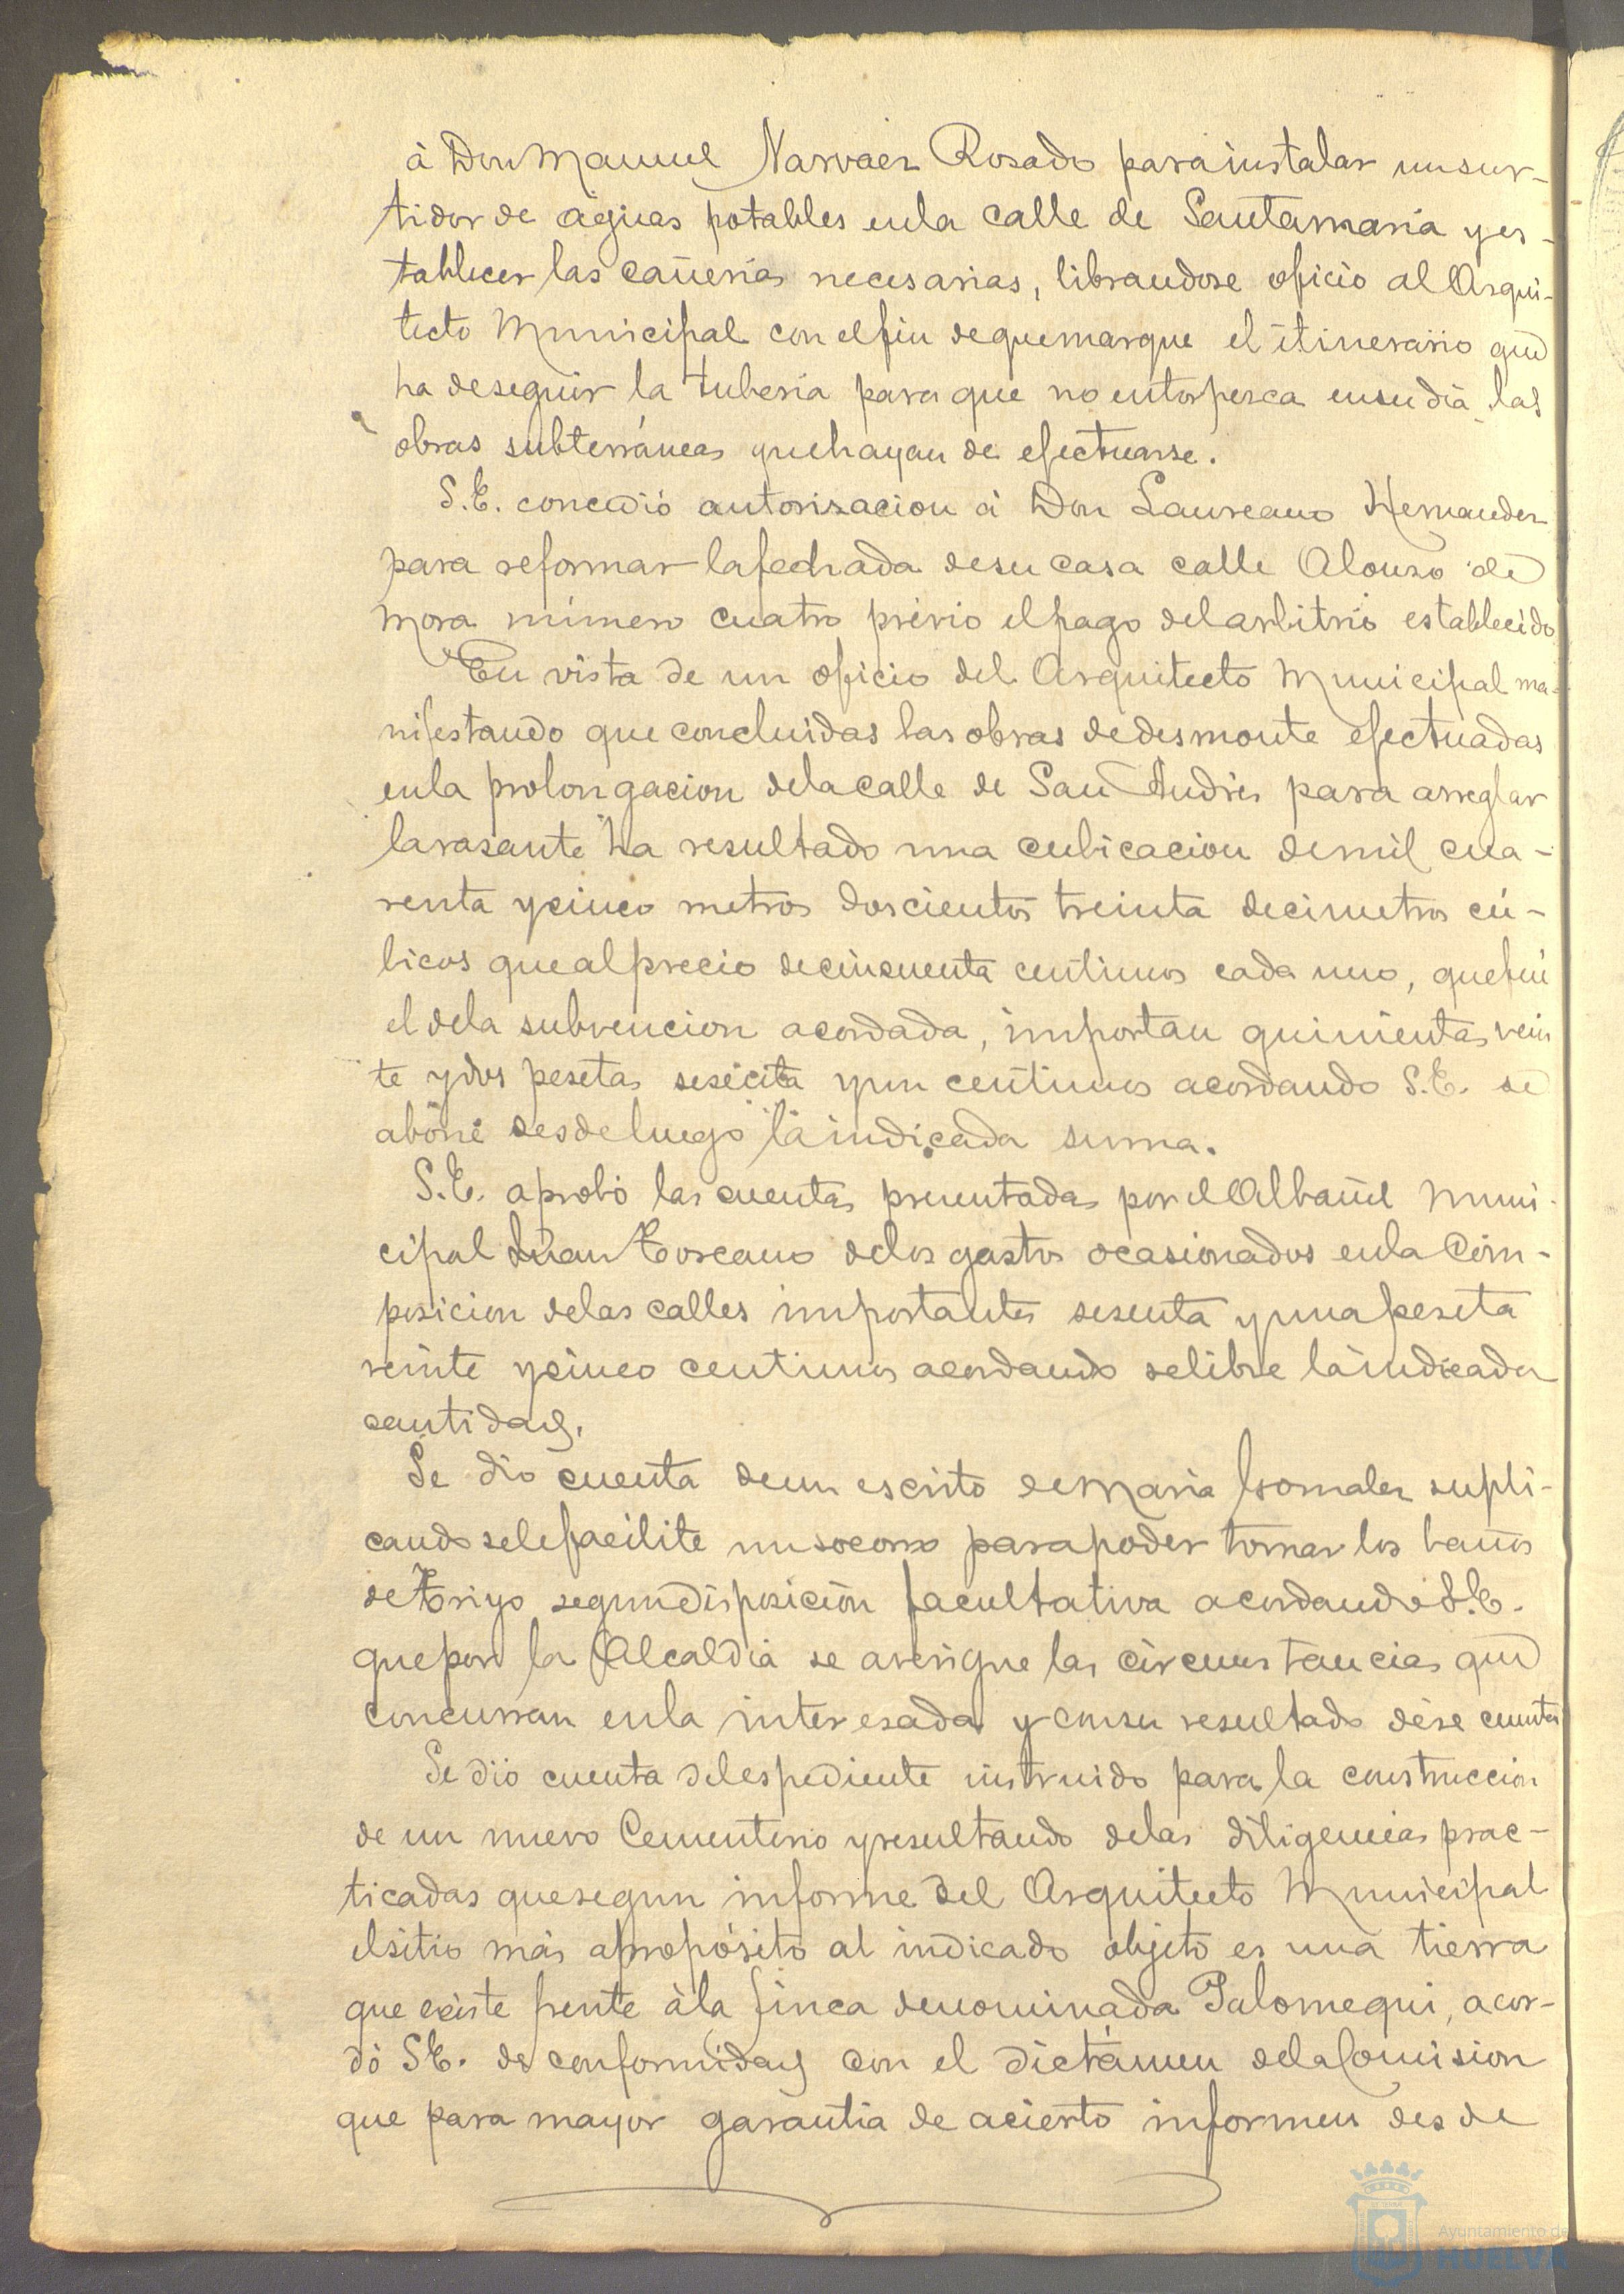 à Don Manuel Narvaez Rosado para instalar un sur-
tidor de aguas potables en la calle de Santamaria y es-
tablecer las cañerias necesarias, librandose oficio al Arqui-
tecto Municipal con el fin de que marque el itinerario que
ha de seguir la tuberia para que no entorpezca en su dia las
obras subterráneas que hayan de efectuarse.
S.E. concedió autorizacion á Don Laureano Hernandez
para reformar la fachada de su casa calle Alonso de
Mora número cuatro prévio el pago del arbitrio establecido
En vista de un oficio del Arquitecto Municipal ma-
nifestando que concluidas las obras de desmonte efectuadas
en la prolongacion de la calle de San Andrés para arreglar
la rasante ha resultado una cubicacion de mil cua-
renta y cinco metros doscientos treinta decimetros cú-
bicos que al precio de cincuenta centimos cada uno, que fué
el de la subvencion acordada, importan quinientas vein
te y dos pesetas sesenta y un centimos acordando S.E. se
abone desde luego la indicada suma.
S.E. aprobó las cuentas presentadas por el Albañil Muni-
cipal Juan Toscano de los gastos ocasionados en la Com-
posicion de las calles importantes sesenta y una peseta
veinte y cinco centimos acordando se libre la indicada
cantidad.
Se dio cuenta de un escrito de Maria Gonzalez supli-
cando se le facilite un socorro para poder tomar los baños
de Trigo segun disposición facultativa acordando S.E.
que por la Alcaldia se averigue las circunstancias que
concurran en la interesada y con su resultado dése cuenta
Se dió cuenta del espediente instruido para la construccion
de un nuevo Cementerio y resultando de las diligencias prac-
ticadas que segun informe del Arquitecto Municipal
el sitio más apropósito al indicado objeto es una tierra
que existe frente à la finca denominada Palomeque, acor-
dó S.E. de conformidad con el dictámen de la Comision
que para mayor garantia de acierto informen desde
Ayuntamiento de
HUELVA